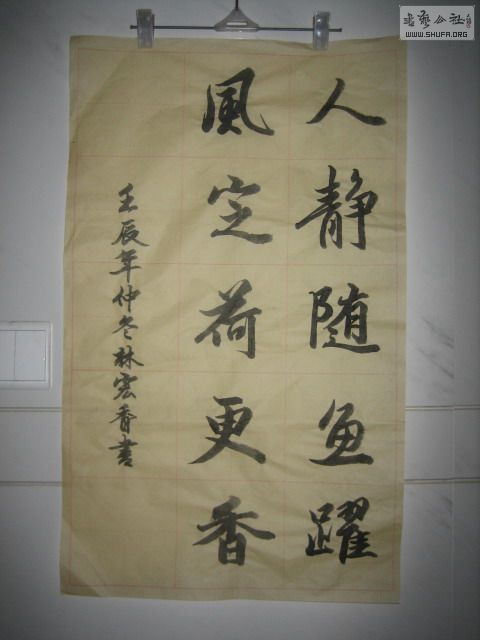 人静随鱼跃
風定荷更香
壬辰年仲冬林宏香書
書藝公社
WWW.SHUFA.ORG